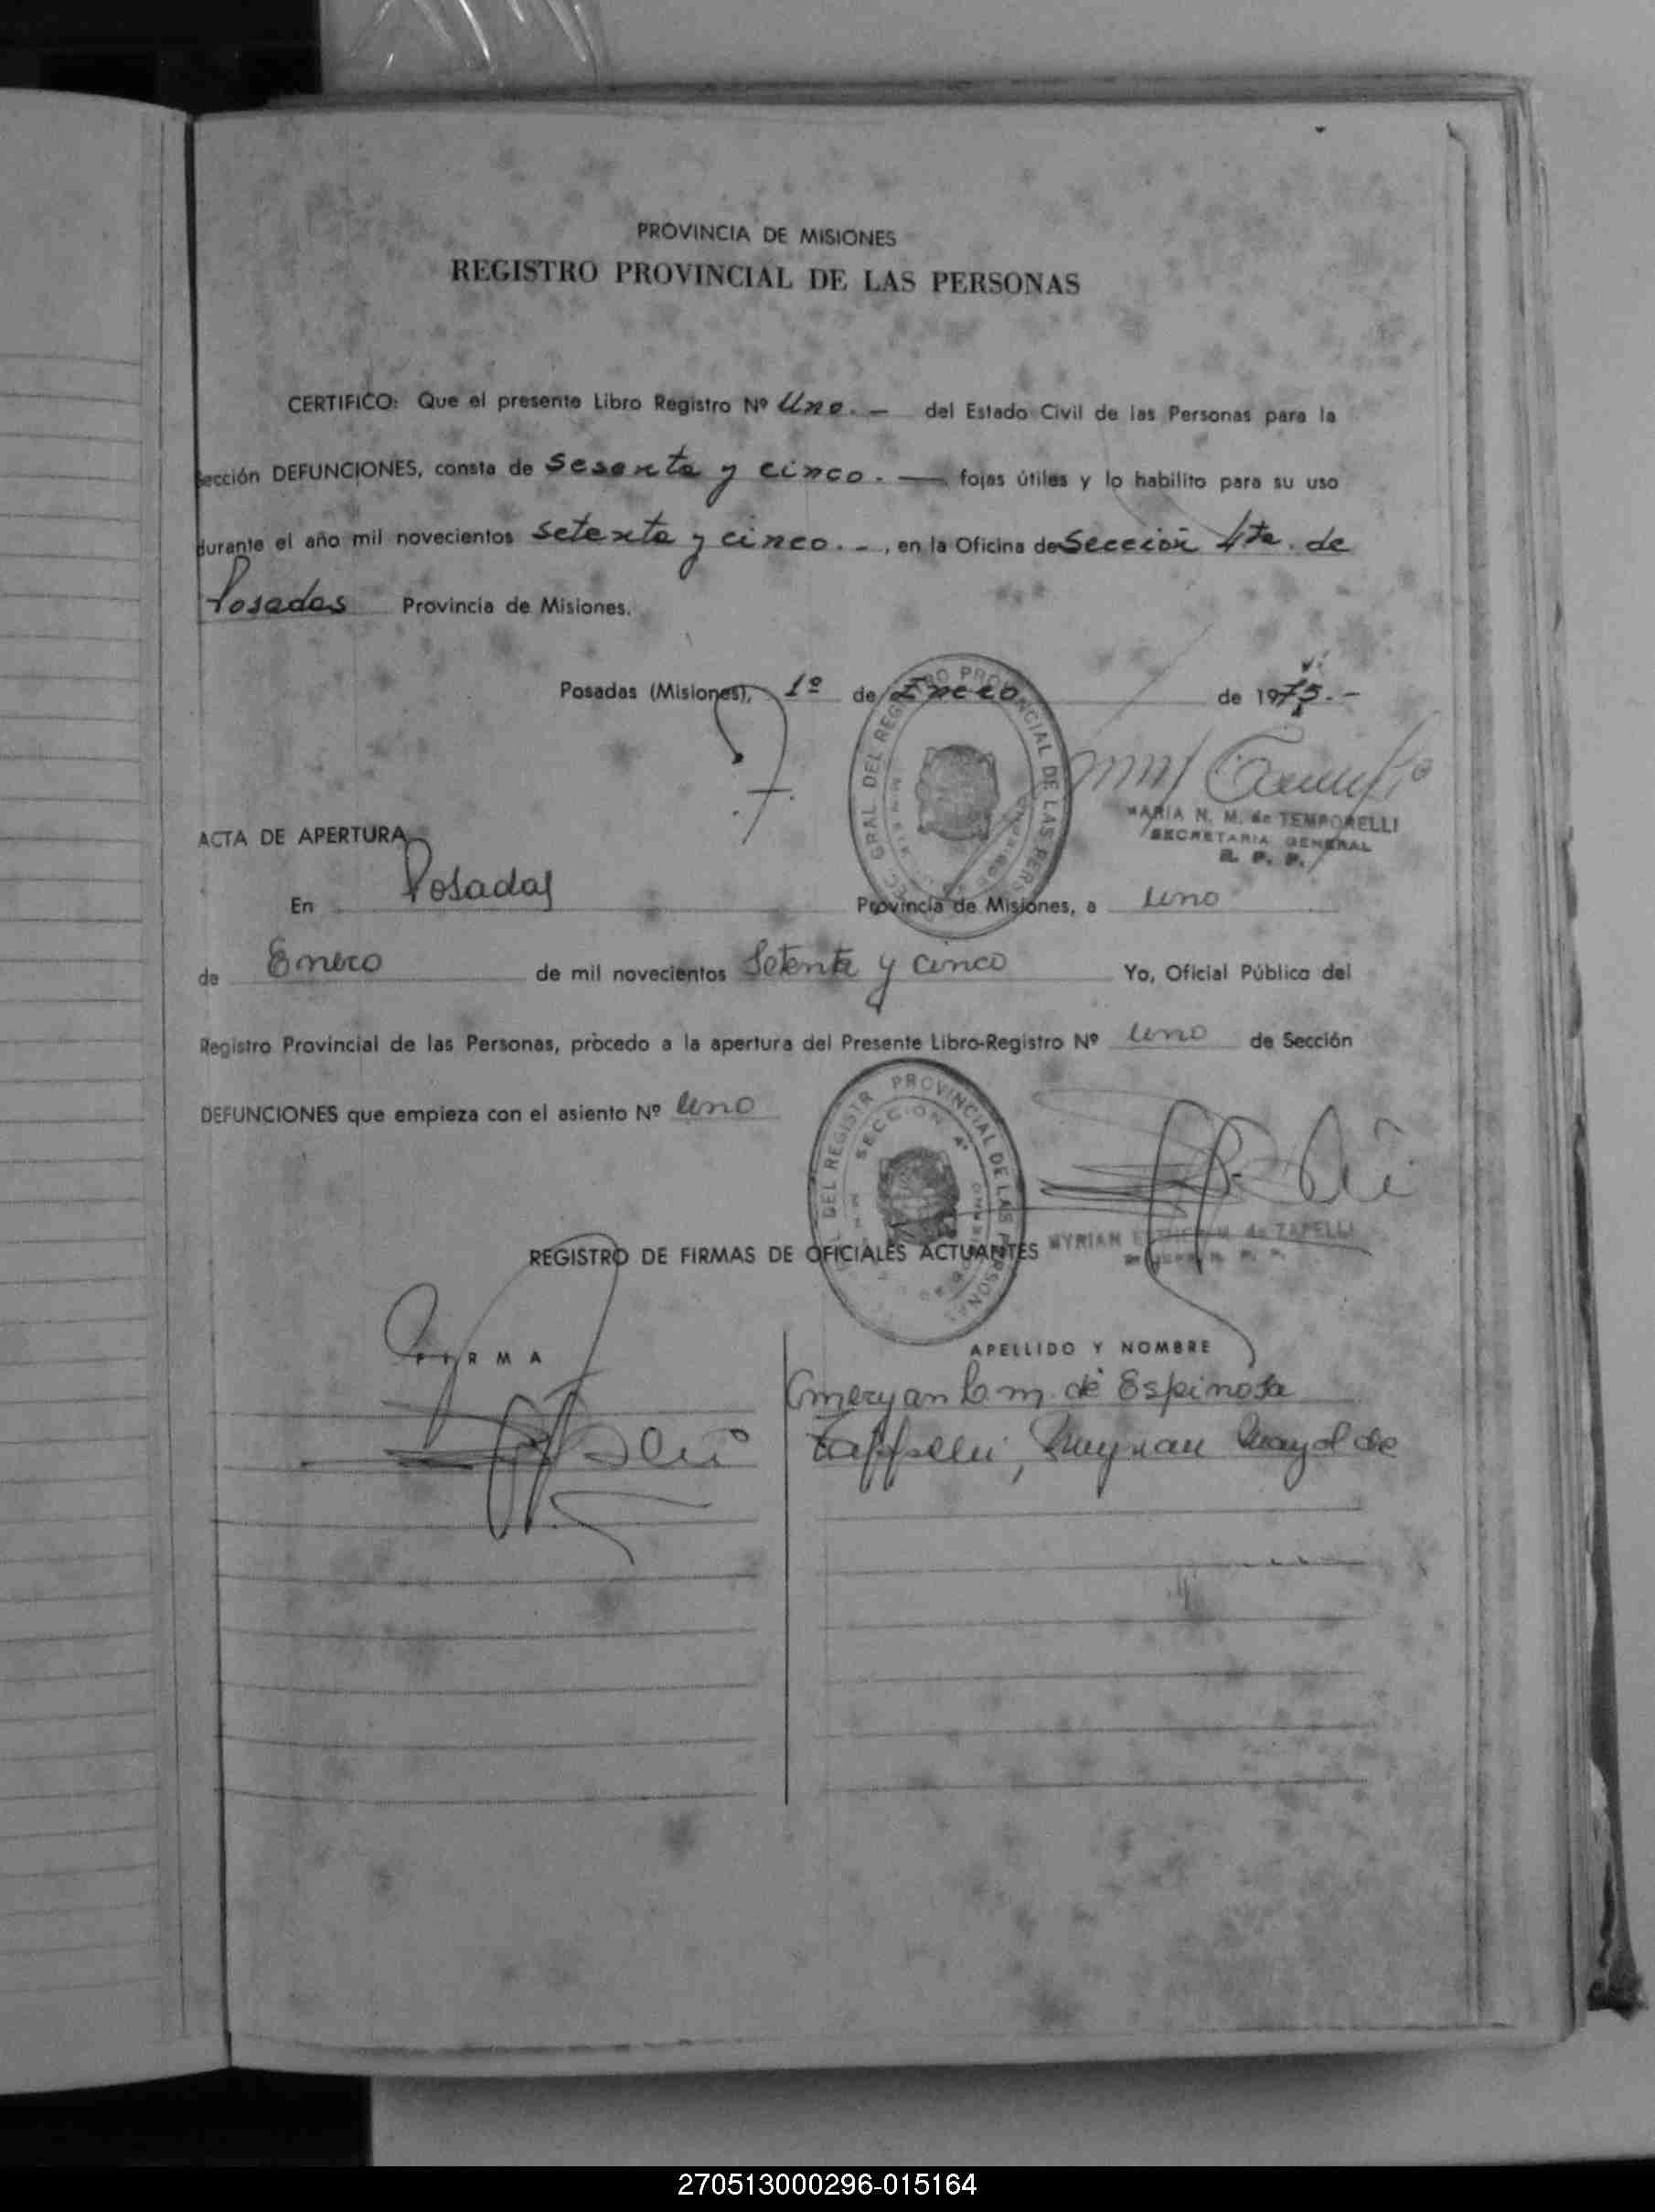 PROVINCIA DE MISIONES
REGISTRO PROVINCIAL DE LAS PERSONAS
CERTIFICO: Que el presente Libro Registro Nº Uno. — del Estado Civil de las Personas para la
Sección DEFUNCIONES, consta de Sesenta y cinco. — fojas útiles y lo habilito para su uso
durante el año mil novecientos setenta y cinco. -, en la Oficina de Sección 4ta. de
Posadas Provincia de Misiones.
Posadas (Misiones), 1º de Enero de 1975.-
MARIA N. M. de TEMPORELLI
SECRETARIA GENERAL
R. P. P.
ACTA DE APERTURA
En Posadas Provincia de Misiones, a uno
de Enero de mil novecientos Setenta y cinco Yo, Oficial Público del
Registro Provincial de las Personas, procedo a la apertura del Presente Libro-Registro Nº uno de Sección
DEFUNCIONES que empieza con el asiento Nº uno
PROVINCIAL DE LAS
SECCION 4ª
MYRIAN de ZAPELLI
REGISTRO DE FIRMAS DE OFICIALES ACTUANTES
FIRMA APELLIDO Y NOMBRE
m. de Espinosa
de
270513000296-015164